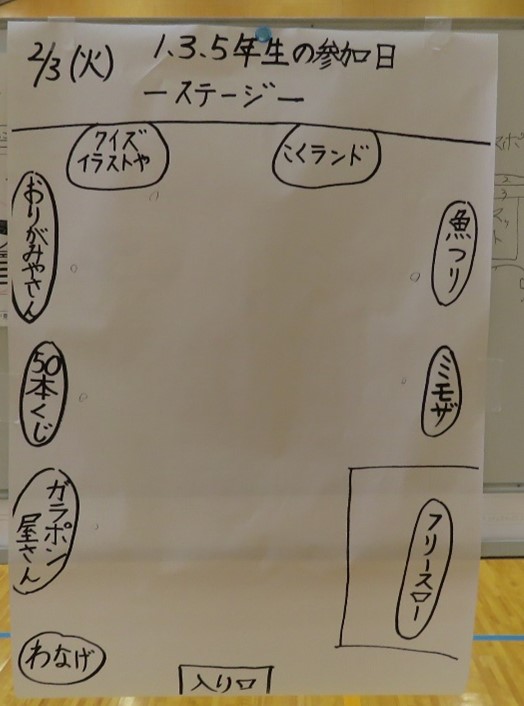 2/3(火) 1.3.5年生の参加日
―ステージ―
クイズ
イラストや
こくランド
おりがみやさん
魚つり
50本くじ
ミモザ
ガラポン
屋さん
フリースロー
わなげ
入り口